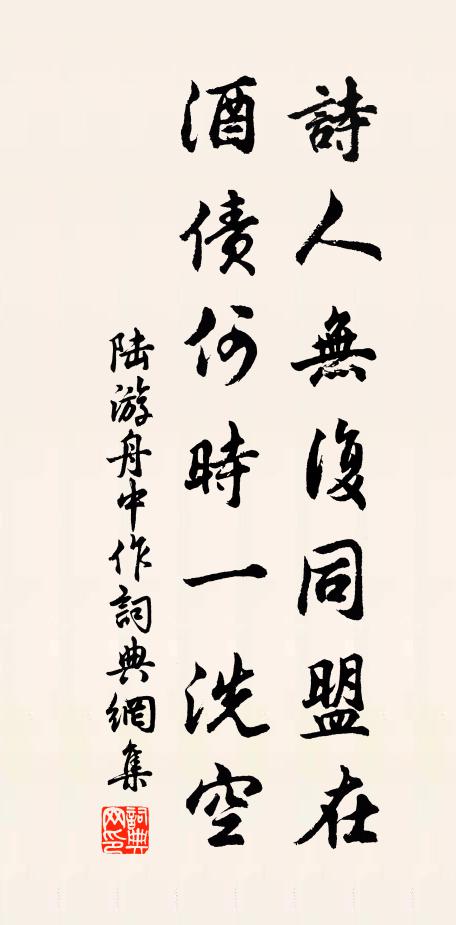 詩人無復同盟在
酒債何時一洗空
陸游舟中作詞典網集
詞典网印